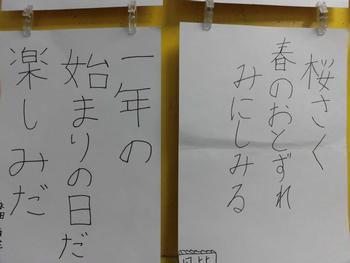 桜さく
春のおとずれ
みにしみる
一年の
始まりの日だ
楽しみだ